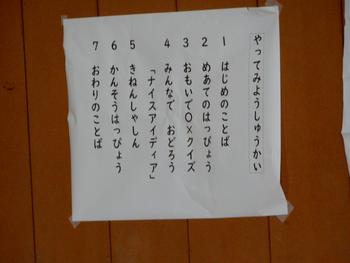 やってみようしゅうかい
1 はじめのことば
2 めあてのはっぴょう
3 おもいで〇×クイズ
4 みんなで おどろう
「ナイスアイディア」
5 きねんしゃしん
6 かんそうはっぴょう
7 おわりのことば